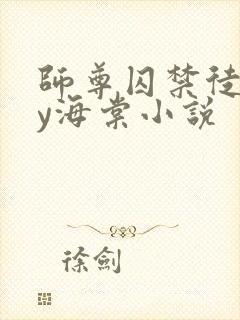 師尊囚禁徒
y海棠小說
徐劍